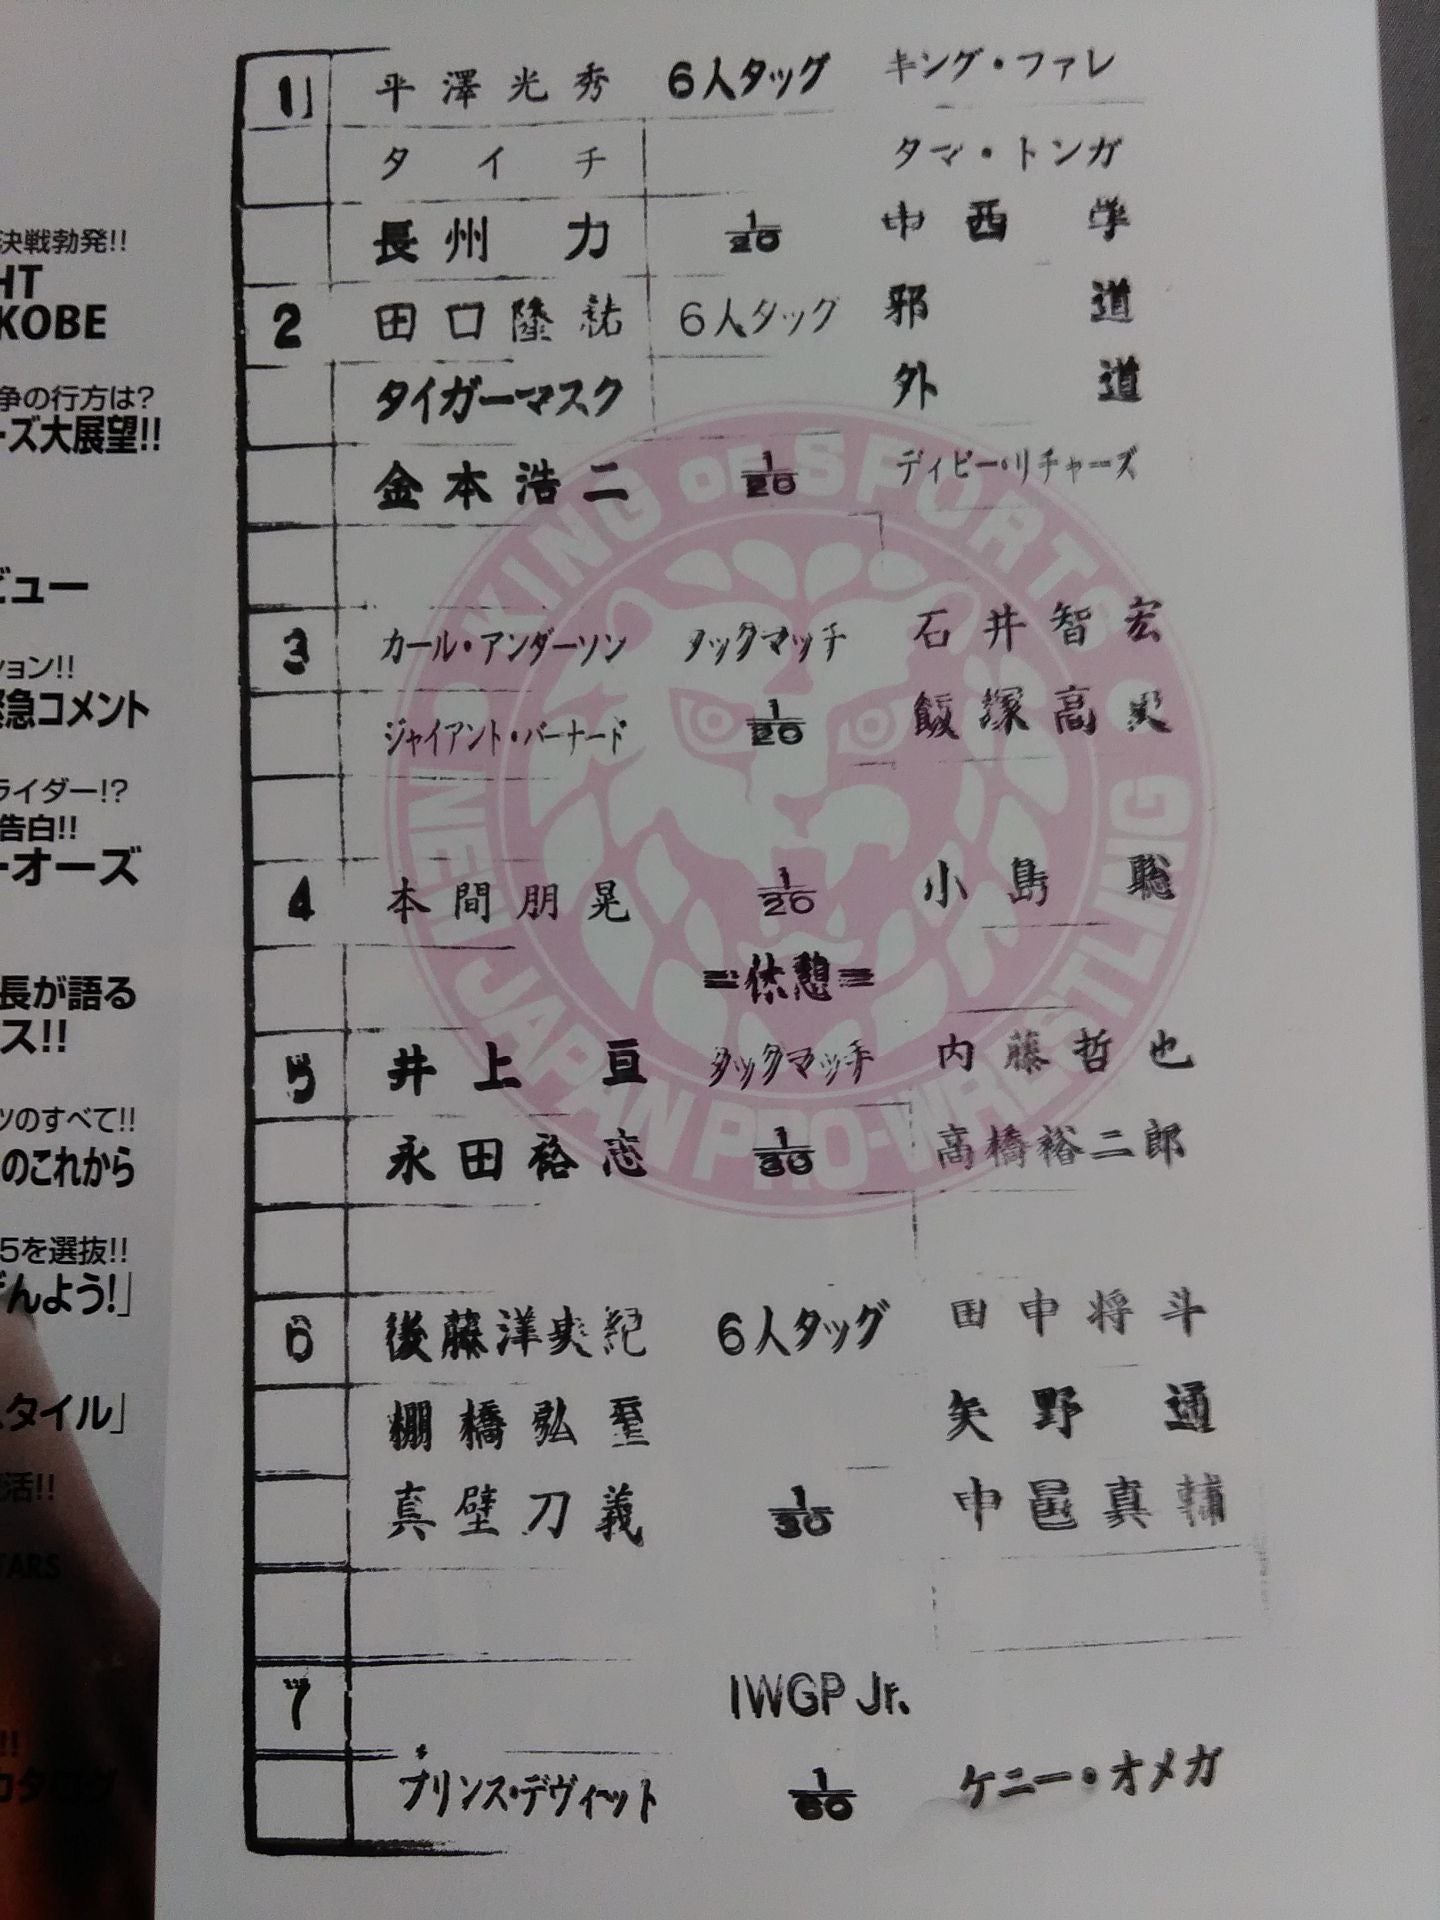 決戦勃発!!
HT
KOBE
争の行方は?
ーズ大展望!!
ビュー
ション!!
緊急コメント
ライダー!?
告白!!
ーオーズ
長が語る
ス!!
ツのすべて!!
のこれから
5を選抜!!
げんよう!」
スタイル」
活!!
TARS
!!
カタログ
1 平澤光秀 6人タッグ キング・ファレ
タイチ タマ・トンガ
長州力 1/20 中西学
2 田口隆祐 6人タッグ 邪道
タイガーマスク 外道
金本浩二 1/20 デイビー・リチャーズ
3 カール・アンダーソン タッグマッチ 石井智宏
ジャイアント・バーナード 1/20 飯塚高史
4 本間朋晃 1/20 小島聡
=休憩=
5 井上亘 タッグマッチ 内藤哲也
永田裕志 1/30 高橋裕二郎
6 後藤洋央紀 6人タッグ 田中将斗
棚橋弘至 矢野通
真壁刀義 1/30 中邑真輔
7 IWGP Jr.
プリンス・デヴィット 1/60 ケニー・オメガ
KING OF SPORTS
NEW JAPAN PRO-WRESTLING